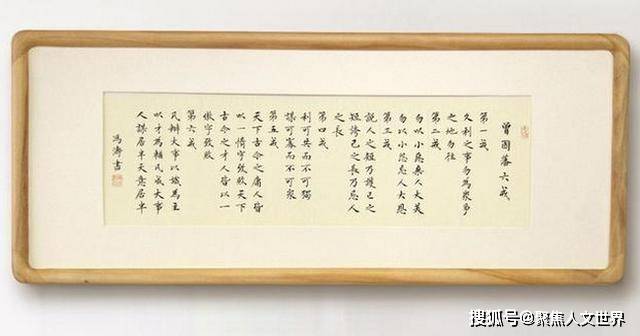 曾國藩六戒
第一戒
久利之事勿為眾爭
之地勿往
第二戒
勿以小惡棄人大美
勿以小怨忘人大恩
第三戒
說人之短乃護己之
短誇己之長乃忌人
之長
第四戒
利可共而不可獨
謀可寡而不可眾
第五戒
天下古今之庸人皆
以一惰字致敗天下
古今之才人皆以一
傲字致敗
第六戒
凡辦大事以識為主
以才為輔凡成大事
人謀居半天意居半
馮濤書
搜狐号@聚焦人文世界